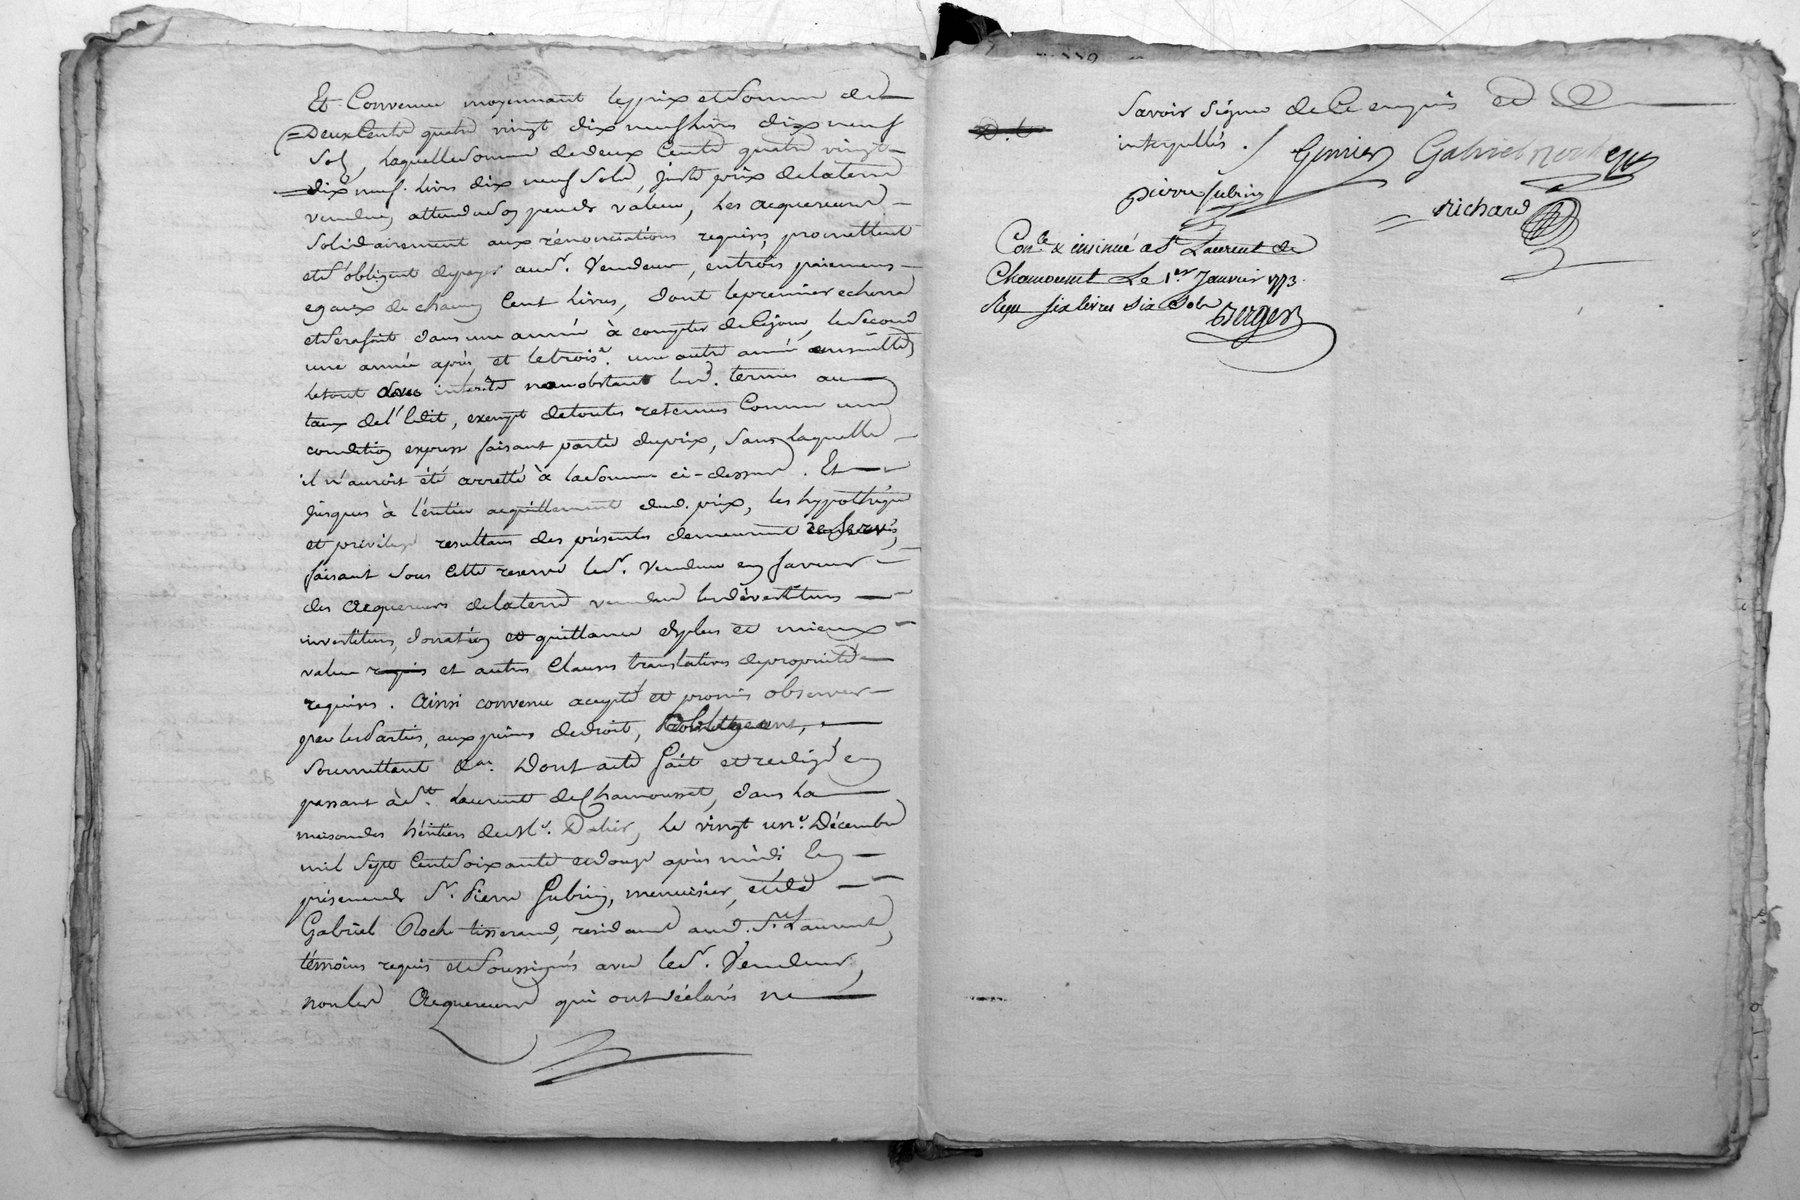 Et Convenu moyennant le prix et Somme de
Deux Cents quatre vingt dix neuf Livres dix neuf
Sols, laquelle Somme de deux Cents quatre vingt
dix neuf Livres dix neuf Sols, juste prix de la terre
vendue, attendu Son peu de valeur, Les acquereurs
Solidairement aux rénonciations requises, promettent
et S'obligent de payer aud. Sr. Vendeur, en trois paiemens
egaux de chacun Cent Livres, dont le premier echerra
et Sera fait dans une année à compter de Ce jour, le Second
une année après et le trois.e une autre année ensuitte,
le tout avec interêts nonobstant lesd. termes au
taux de l'Edit, exempt de toutes retenues Comme une
condition expresse faisant partie du prix, Sans laquelle
il n'auroit été arretté à la Somme ci-dessus. Et
jusques à l'entier acquittement dud. prix, les hypothéque
et privilege resultans des présentes demeurent reservés,
faisant Sous Cette reserve led. Sr. Vendeur en faveur
des acquereurs de la terre vendue les dévestitures
investitures, donation et quittance de plus et mieux
value requis et autres Clauses translatives de propriété
requises. Ainsi convenu accepté et promis observer
par les Parties, aux peines de droit, obligeant,
Soumettant &a. Dont acte fait et redigé en
passant à St. Laurent de Chamousset, dans la
maison des héritiers de Mr. Dalier, le vingt un.e Décembre
mil Sept Cent Soixante et douze après midi En
présence de Sr. Pierre Jubin, menuisier, et de
Gabriel Roche tisserand, residant aud. St. Laurent,
témoins requis et Soussignés avec led. Sr. Vendeur,
non les Acquereurs qui ont déclaré ne
Savoir Signer de Ce enquis et
interpellés.
Grinier Gabriel roche
pierre Jubin
richard
Con.lé & insinué a St. Laurent de
Chamousset Le 1er Janvier 1773.
Reçu Six livres dix Sols
Berger